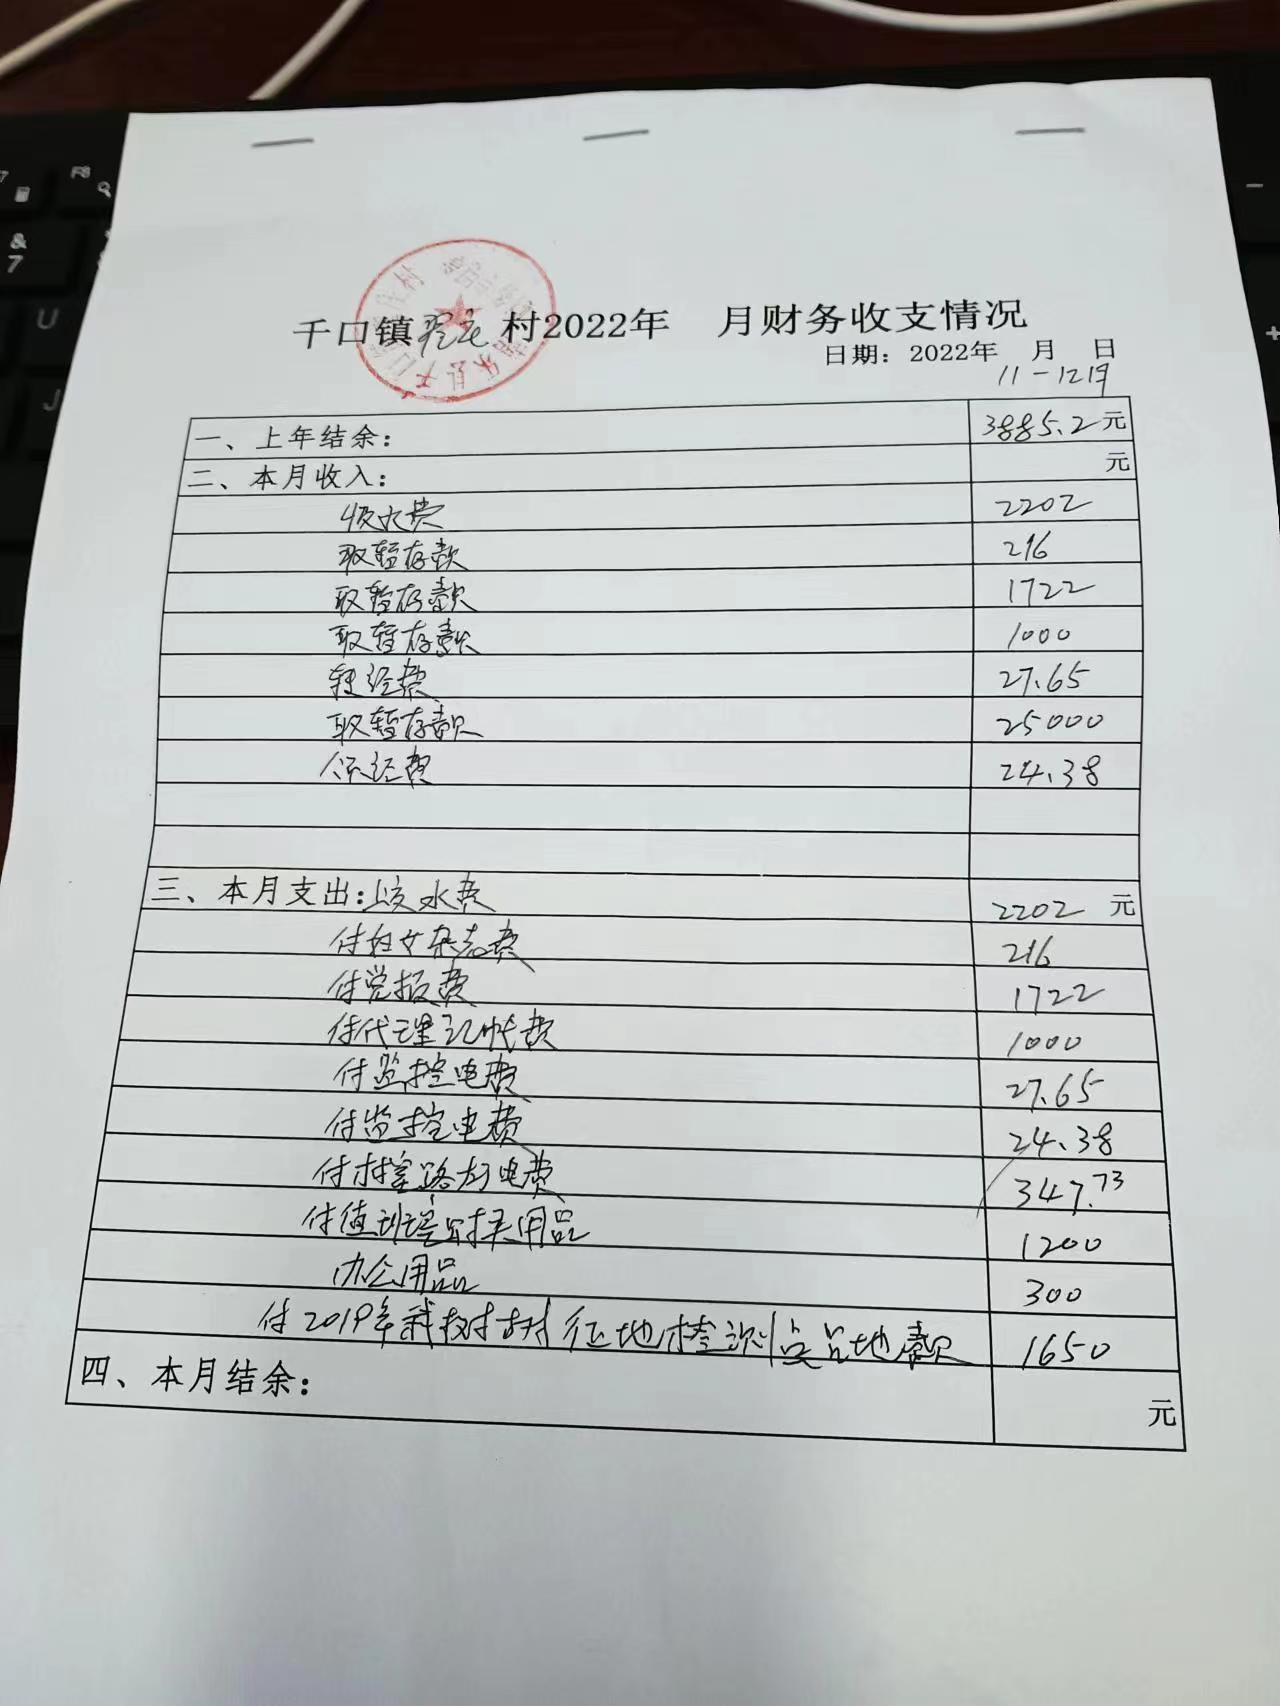 千口镇翟庄村2022年 月财务收支情况
日期：2022年 月 日
11-12月
一、上年结余： 3885.2元
二、本月收入： 元
收水费 2202
取暂存款 216
取暂存款 1722
取暂存款 1000
转经费 27.65
取暂存款 25000
领经费 24.38
三、本月支出：上交水费 2202 元
付妇女杂志费 216
付党报费 1722
付代理记帐费 1000
付监控电费 27.65
付监控电费 24.38
付村室路灯电费 347.73
付值班 用品 1200
办公用品 300
付2019年 树 征地 占地款 1650
四、本月结余： 元